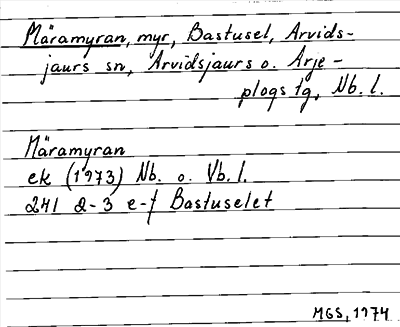 Märamyran, myr, Bastusel, Arvids-
jaurs sn, Arvidsjaurs o. Arje-
plogs tg, Nb. l.
Märamyran
ek (1973) Nb. o. Vb. l.
241 2-3 e-f Bastuselet
MGS, 1974